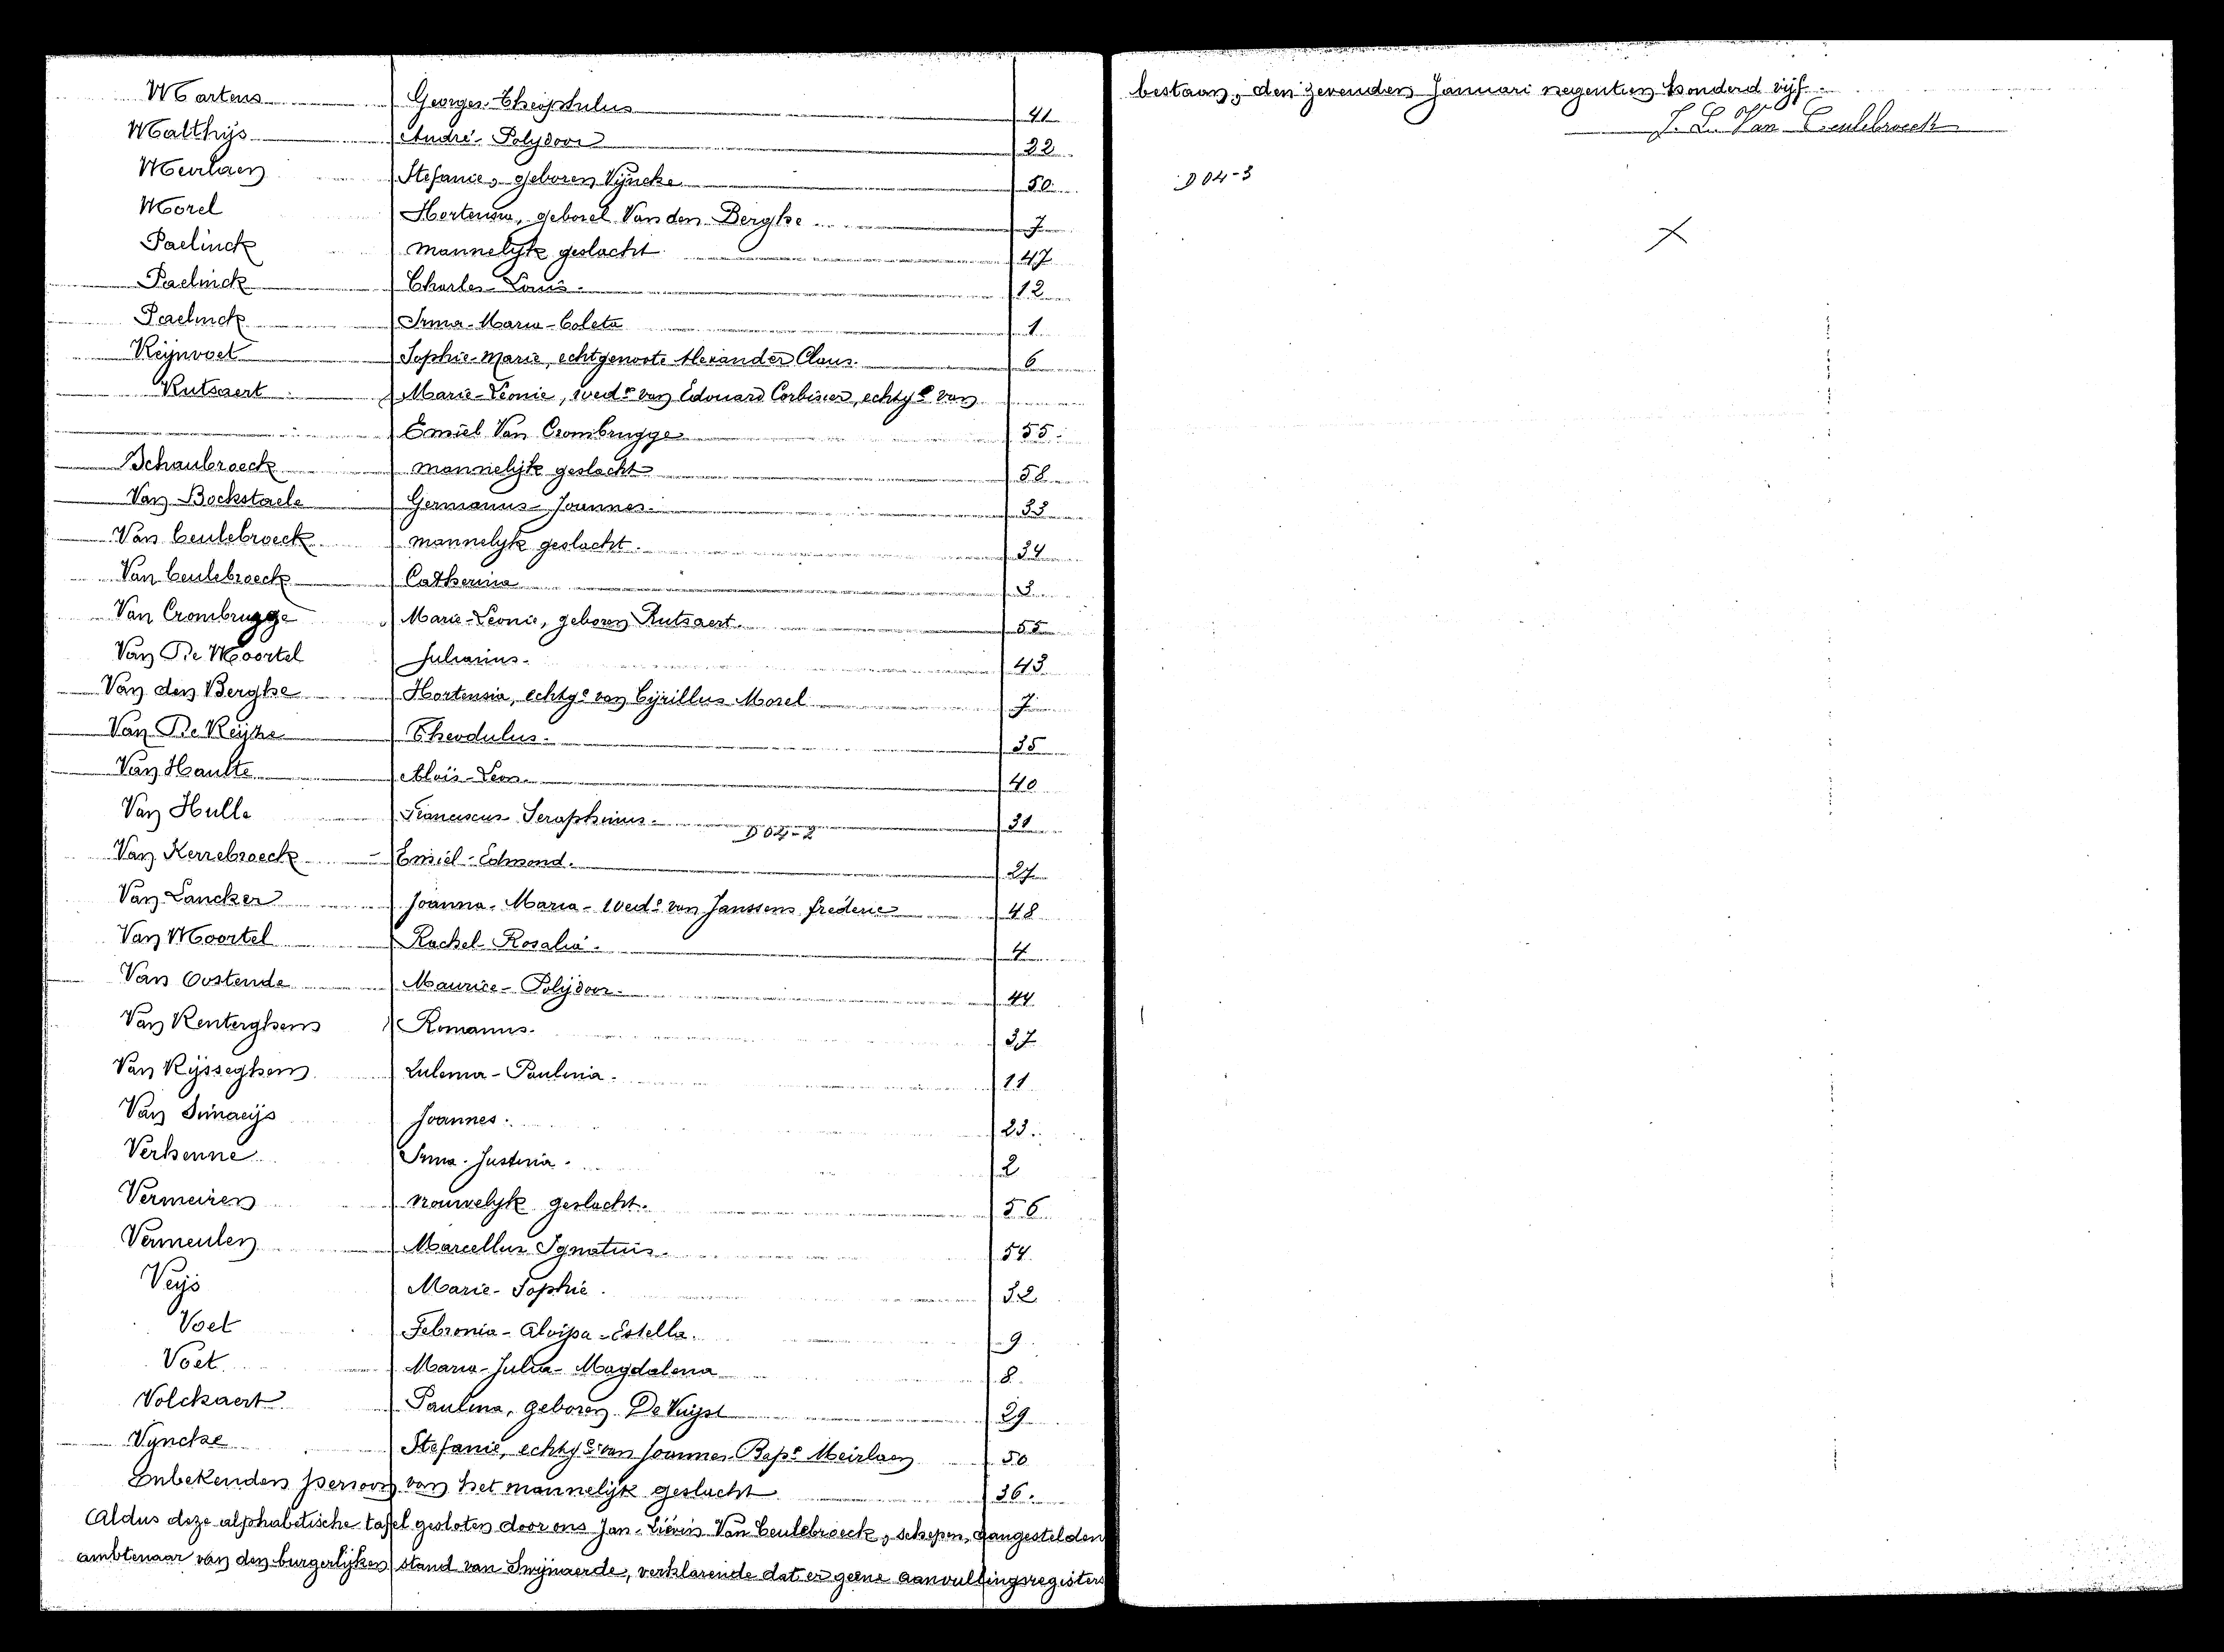 Martens Georges-Theophulus 41
Matthijs André-Polydoor 22
Meirlaen Stefanie, geboren Vyncke 50
Morel Hortensia, geborel Van den Berghe 7
Paelinck mannelijk geslacht 47
Paelinck Charles-Louis. 12
Paelinck Irma-Maria-Coleta 1
Reijnvoet Sophie-Marie, echtgenoote Alexander Claus. 6
Rutsaert Marie-Léonie, wede van Edouard Corbisier, echtge van
Emiel Van Crombrugge 55.
Schaubroeck mannelijk geslacht 58
Van Bockstaele Germanus-Joannes. 33
Van Ceulebroeck mannelyk geslacht. 34
Van Ceulebroeck Catherina 3
Van Crombrugge Marie-Leonie, geboren Rutsaert. 55
Van De Moortel Julianius. 43
Van den Berghe Hortensia, echtge van Cyrillus Morel 7
Van De Keijke Theodulus. 35
Van Haulte Aloïs-Leon. 40
Van Hulle Franciscus Seraphinus. 31
D 04-2
Van Kerrebroeck Emiel-Edmond. 27
Van Lancker Joanna-Maria-wede van Janssens frédéric 48
Van Moortel Rachel-Rosalia. 4
Van Oostende Maurice-Polydoor. 44
Van Renterghem Romanus. 37
Van Rijsseghem Zulema-Paulina. 11
Van Simaeijs Joannes. 23.
Verhenne Irma-Justina. 2
Vermeiren vrouwelyk geslacht. 56
Vermeulen Marcellus Ignatius. 54
Veijs Marie-Sophie. 32
Voet Febronia-Aloïsa-Estella. 9
Voet Maria-Julia-Magdalena 8.
Volckaert Paulina, geboren De Vuijst 29
Vyncke Stefanie, echtge van Joannes Bapte Meirlaen 50
Onbekenden persoon van het mannelijk geslacht 36.
Aldus deze alphabetische tafel gesloten door ons Jan-Liévin Van Ceulebroeck, schepen, aangestelden
ambtenaar van den burgerlijken stand van Swijnaerde, verklarende dat er geene aanvullingsregisters
bestaan, den zevenden Januari negentien honderd vijf.
J. L. Van Ceulebroeck
D 04-3